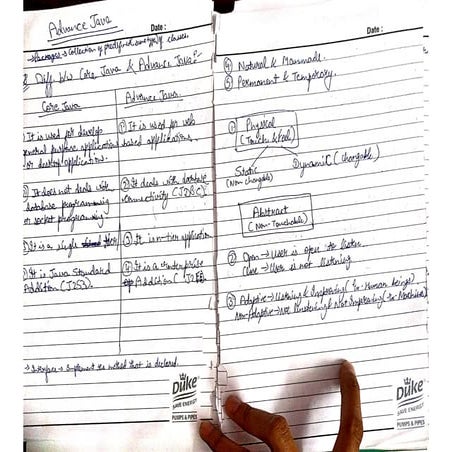 Advance Java
Date :
→ Packages → Collection of predefined same type of classes.
Diff b/w Core Java & Advance Java :-
Core Java
Advance Java
It is used for develop
general purpose application
or desktop application.
① It is used for web
based applications.
It does not deals with
database programming
or socket programming.
② It deals with database
connectivity (JDBC).
It is a single tier
③ It is n-tier application
It is Java Standard
Addition (J2SE).
④ It is a enterprise
Addition (J2EE).
→ Interface → Implement the method that is declared.
Duke
SAVE ENERGY
PUMPS & PIPES
Date :
④ Natural & Manmade.
⑤ Permanent & Temporary.
① Physical
(Touch & Feel)
Static
(Non-changable)
Dynamic (Changable)
Abstract
(Non-Touchable)
② Open → User is open to listen.
Close → User is not listening
③ Adaptive → Listening & Improving (In-Human beings)
Non-Adaptive → Not listening & Not Improving (In-Machine)
Duke
SAVE ENERGY
PUMPS & PIPES